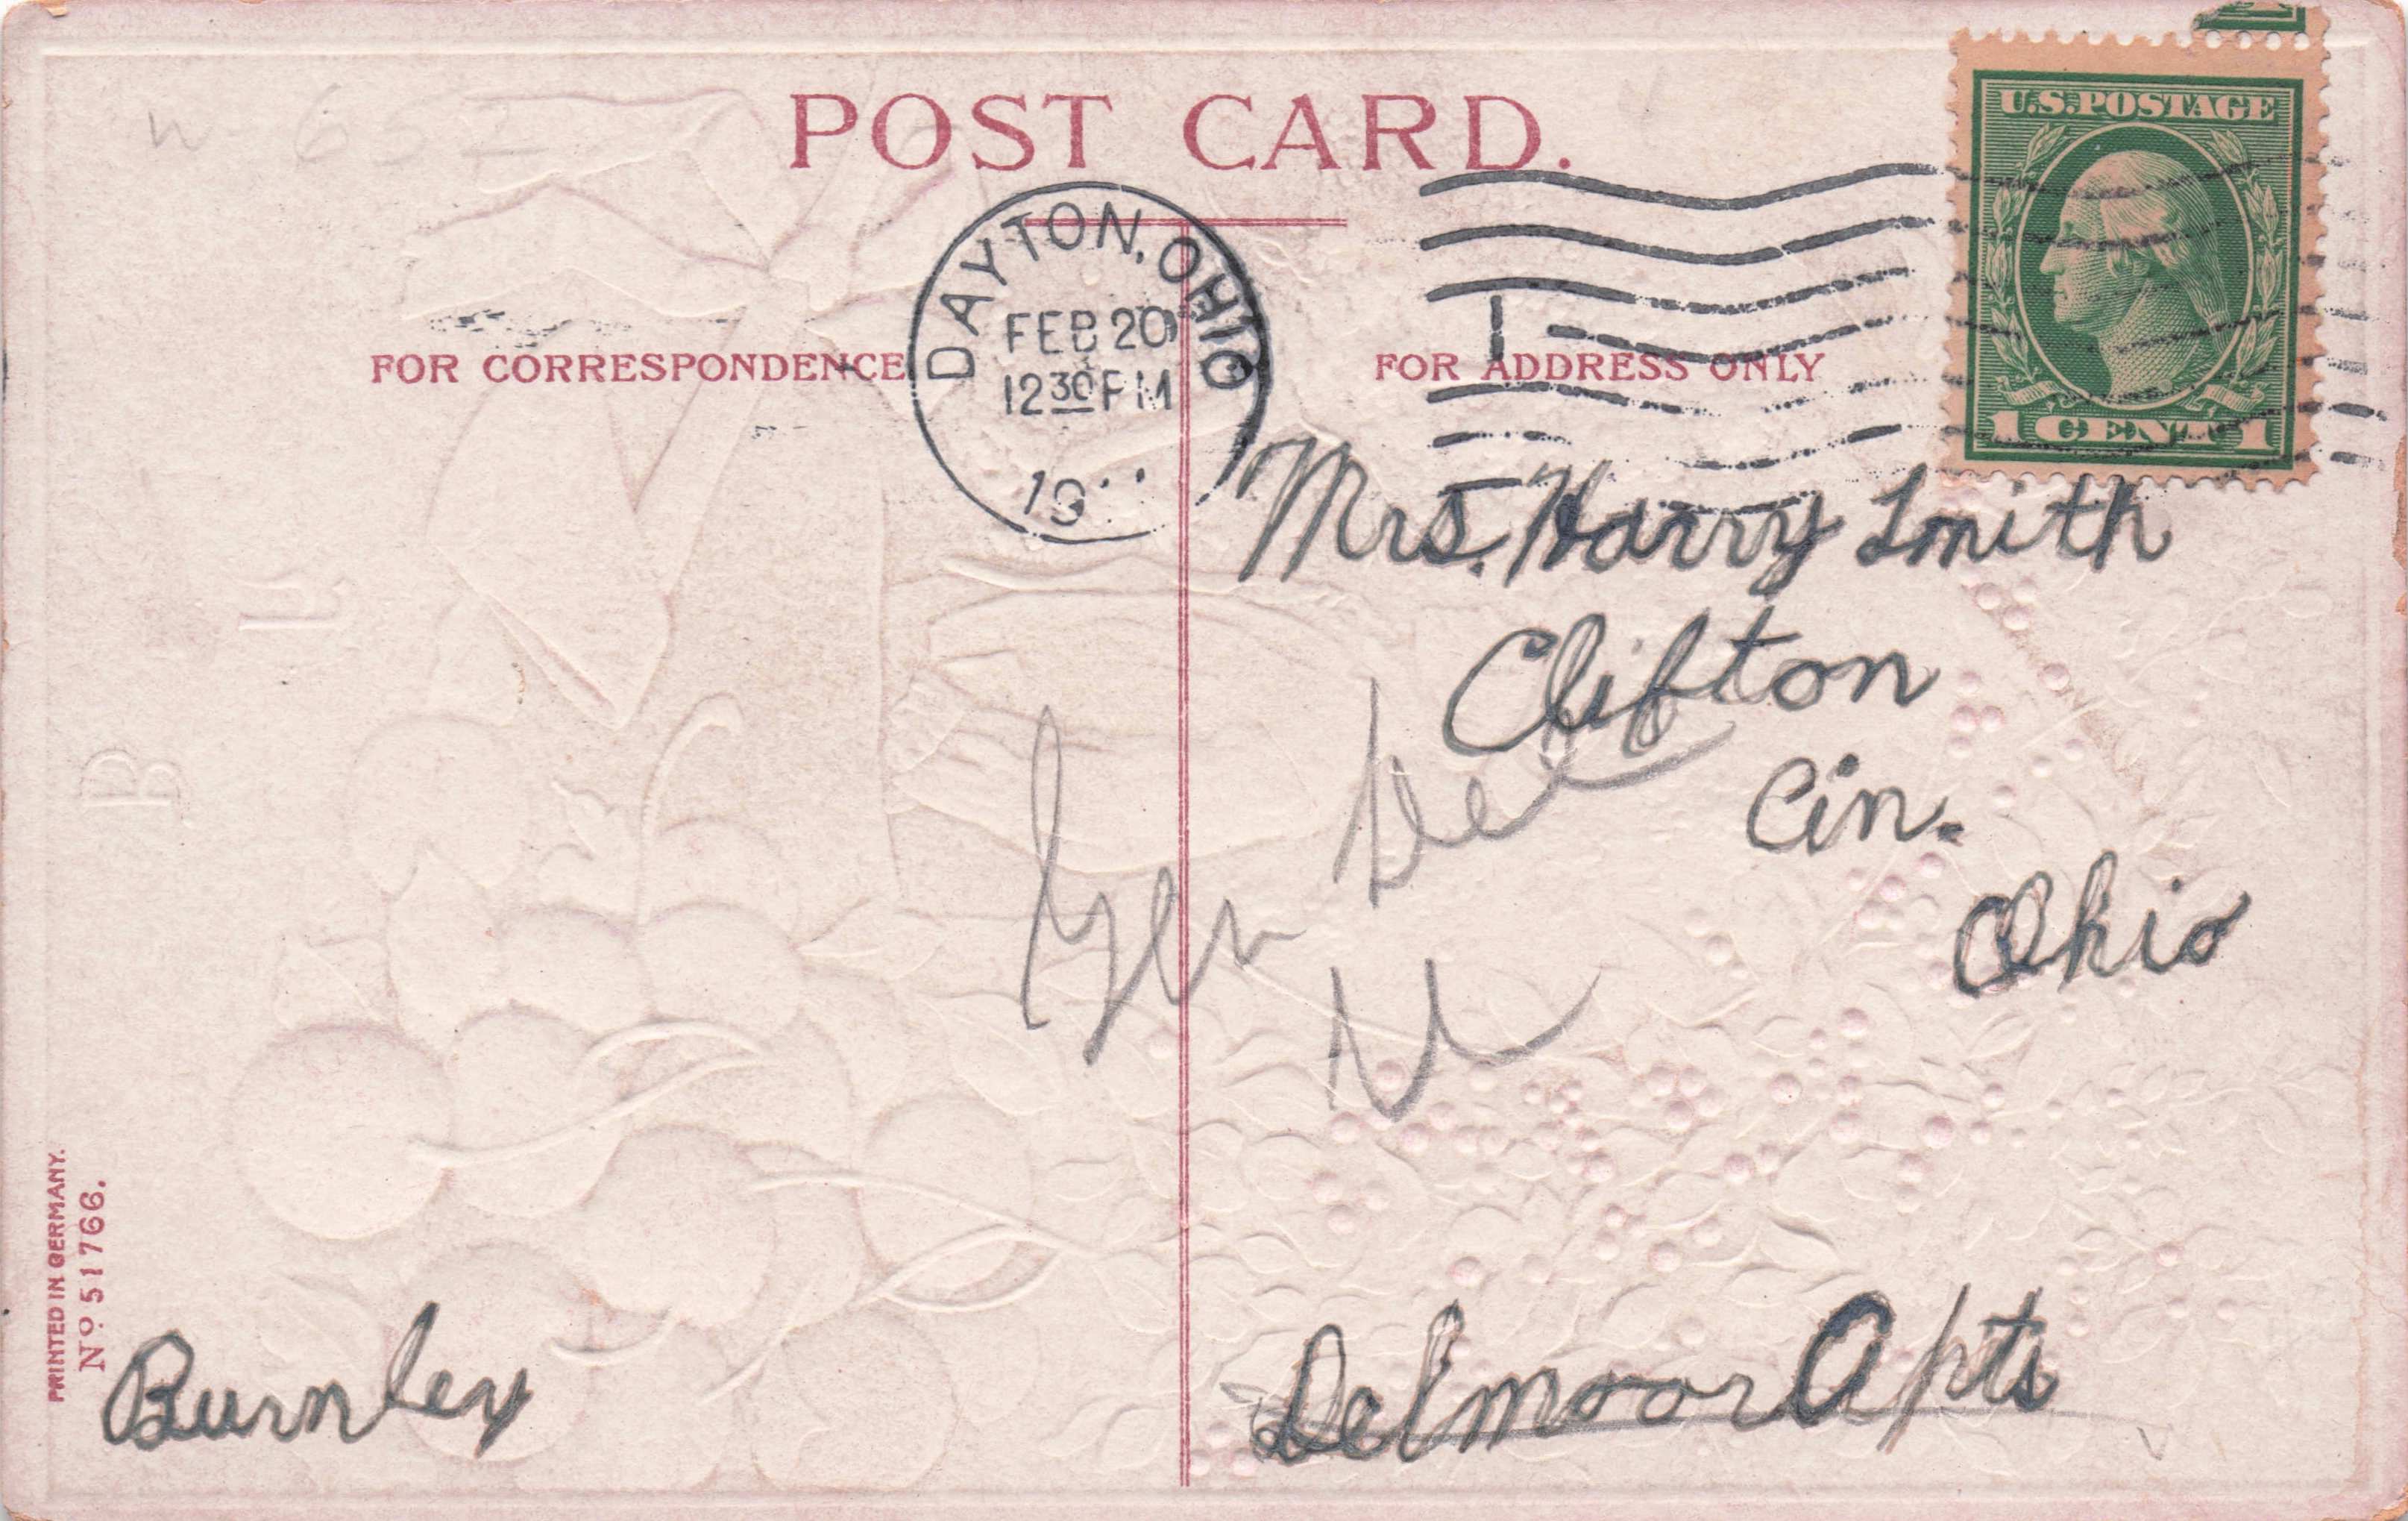 POST CARD.
U.S. POSTAGE
1 CENT 1
DAYTON, OHIO
FEB 20
12 30 PM
19
FOR CORRESPONDENCE
FOR ADDRESS ONLY
Mrs. Harry Smith
Clifton
Cin.
Ohio
Gen Del
Delmoor Apts
Burnley
PRINTED IN GERMANY.
No. 51766.